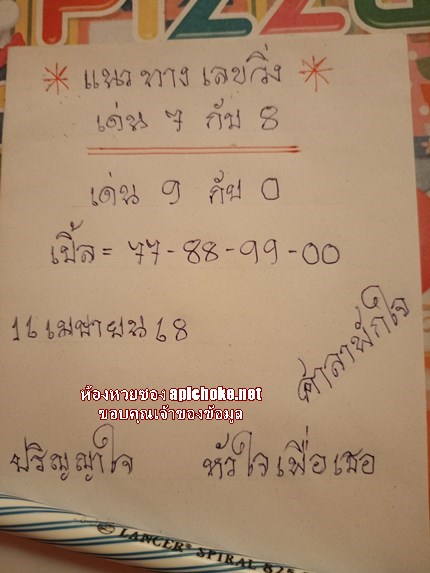 PIZZA
* แนวทางเลขวิ่ง *
เด่น 7 กับ 8
เด่น 9 กับ 0
เบิ้ล = 77-88-99-00
16 เมษายน 68
ศาลาพักใจ
ห้องหวยซอง apichoke.net
ขอบคุณเจ้าของข้อมูล
ปริญญาใจ หัวใจเพื่อเธอ
LANCER SPIRAL 825